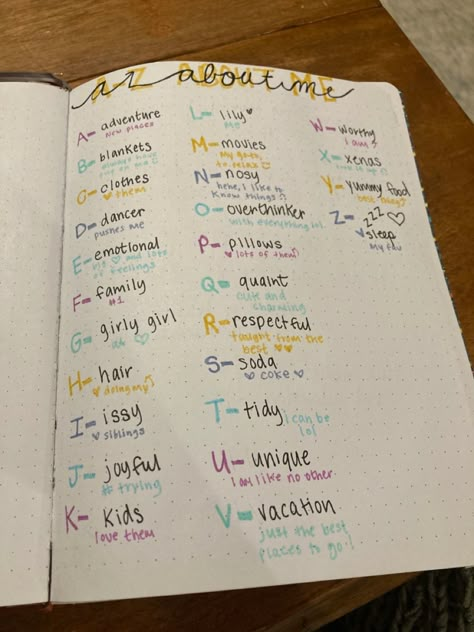 A-Z ABOUT ME
a-z about me
A- adventure
new places
B- blankets
always have
one on me
C- clothes
♡ them
D- dancer
pushes me
E- emotional
big ♡ and lots
of feelings
F- family
#1
G- girly girl
H- hair
♡ doing my
I- issy
♡ siblings
J- joyful
# trying
K- Kids
love them
L- lily ♥
me
M- movies
my go to
to relax
N- nosy
hehe, i like to
know things
O- overthinker
with everything lol
P- pillows
♥ lots of them
Q- quaint
cute and
charming
R- respectful
taught from the
best ♥♥
S- soda
♡ coke ♡
T- tidy i can be
lol
U- unique
I am like no other.
V- vacation
just the best
places to go!
W- worthy
I am
X- xenas
Y- yummy food
Z- zzz ♡
sleep
my fav